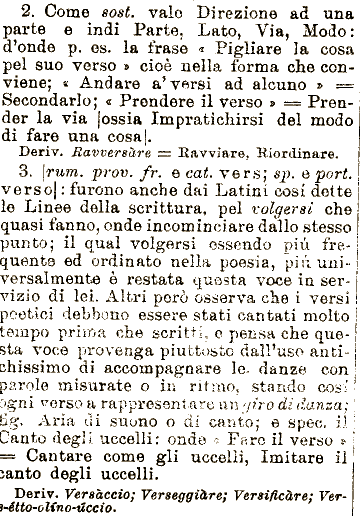 2. Come sost. vale Direzione ad una
parte e indi Parte, Lato, Via, Modo:
d'onde p. es. la frase « Pigliare la cosa
pel suo verso » cioè nella forma che con-
viene; « Andare a' versi ad alcuno » =
Secondarlo; « Prendere il verso » = Pren-
der la via [ossia Impratichirsi del modo
di fare una cosa].
Deriv. Ravversàre = Ravviare, Riordinare.
3. [rum. prov. fr. e cat. vers; sp. e port.
verso]: furono anche dai Latini così dette
le Linee della scrittura, pel volgersi che
quasi fanno, onde incominciare dallo stesso
punto; il qual volgersi essendo più fre-
quente ed ordinato nella poesia, più uni-
versalmente è restata questa voce in ser-
vizio di lei. Altri però osserva che i versi
poetici debbono essere stati cantati molto
tempo prima che scritti, e pensa che que-
sta voce provenga piuttosto dall'uso anti-
chissimo di accompagnare le danze con
parole misurate o in ritmo, stando così
ogni verso a rappresentare un giro di danza;
fig. Aria di suono o di canto; e spec. il
Canto degli uccelli: onde « Fare il verso »
= Cantare come gli uccelli, Imitare il
canto degli uccelli.
Deriv. Versàccio; Verseggiàre; Versificàre; Ver-
s-étto-olíno-úccio.